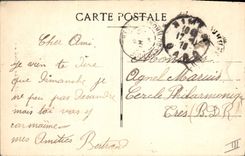 CARTE POSTALE
Cher Ami
je vien te dire
que Dimanche je
ne peu pas desandre
mais toi vas y
car
mes Amitiés Bertrand
Monsieur
Agnel Marius
Cercle Philarmonique
Trets (B.D.R)